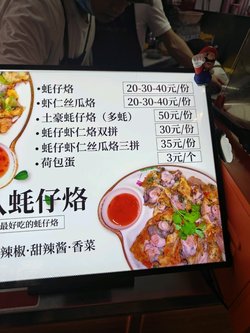 ·蚝仔烙 20-30-40元/份
·虾仁丝瓜烙 20-30-40元/份
·土豪蚝仔烙（多蚝） 50元/份
·蚝仔虾仁烙双拼 30元/份
·蚝仔虾仁丝瓜烙三拼 35元/份
·荷包蛋 3元/个
蚝仔烙
最好吃的蚝仔烙
辣椒·甜辣酱·香菜